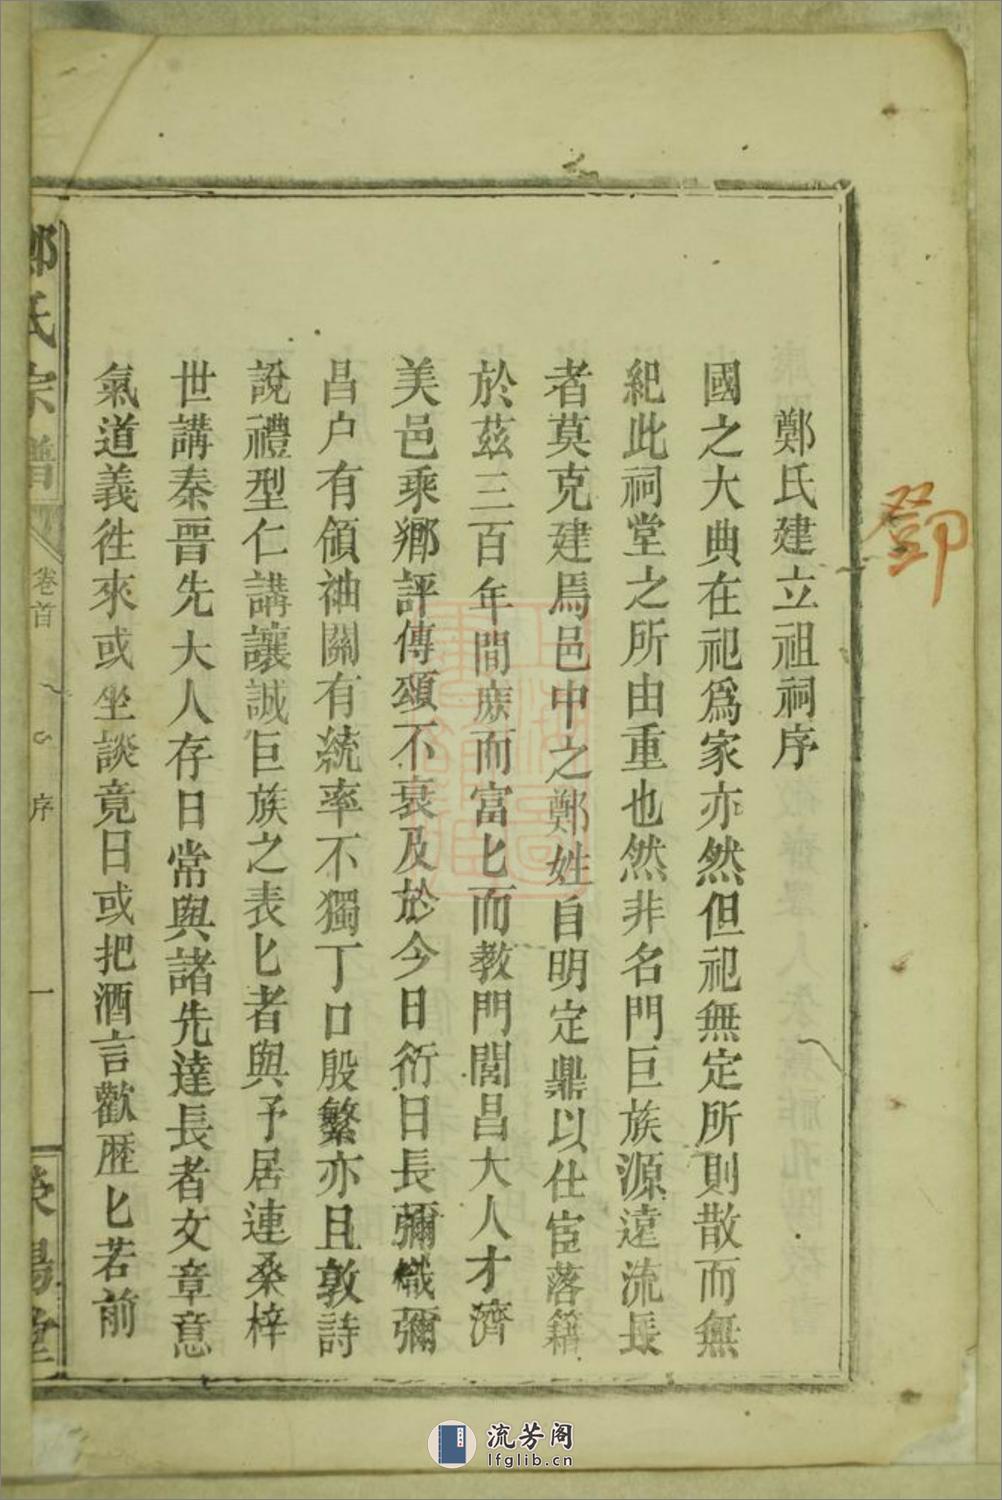 鄧
鄭氏建立祖祠序
國之大典在祀爲家亦然但祀無定所則散而無
紀此祠堂之所由重也然非名門巨族源遠流長
者莫克建焉邑中之鄭姓自明定鼎以仕宦落籍
於茲三百年間庶而富匕而教門閭昌大人才濟
美邑乘鄉評傳頌不衰及於今日衍日長彌熾彌
昌户有領袖關有統率不獨丁口殷繁亦且敦詩
說禮型仁講讓誠巨族之表匕者與予居連桑梓
世講秦晋先大人存日常與諸先達長者文章意
氣道義徃來或坐談竟日或把酒言歡歷匕若前
鄭氏宗譜
卷首
序
一
榮陽堂
流芳阁
lfglib.cn